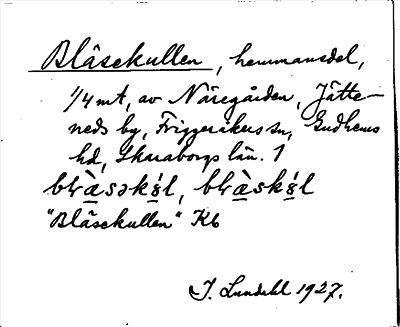 Blåsekullen, hemmansdel,
1/4 mt, av Näregården, Jätte-
neds by, Friggeråkers sn, Gudhems
hd, Skaraborgs län. 1
"Blåsekullen" Kb
I. Lundahl 1927.